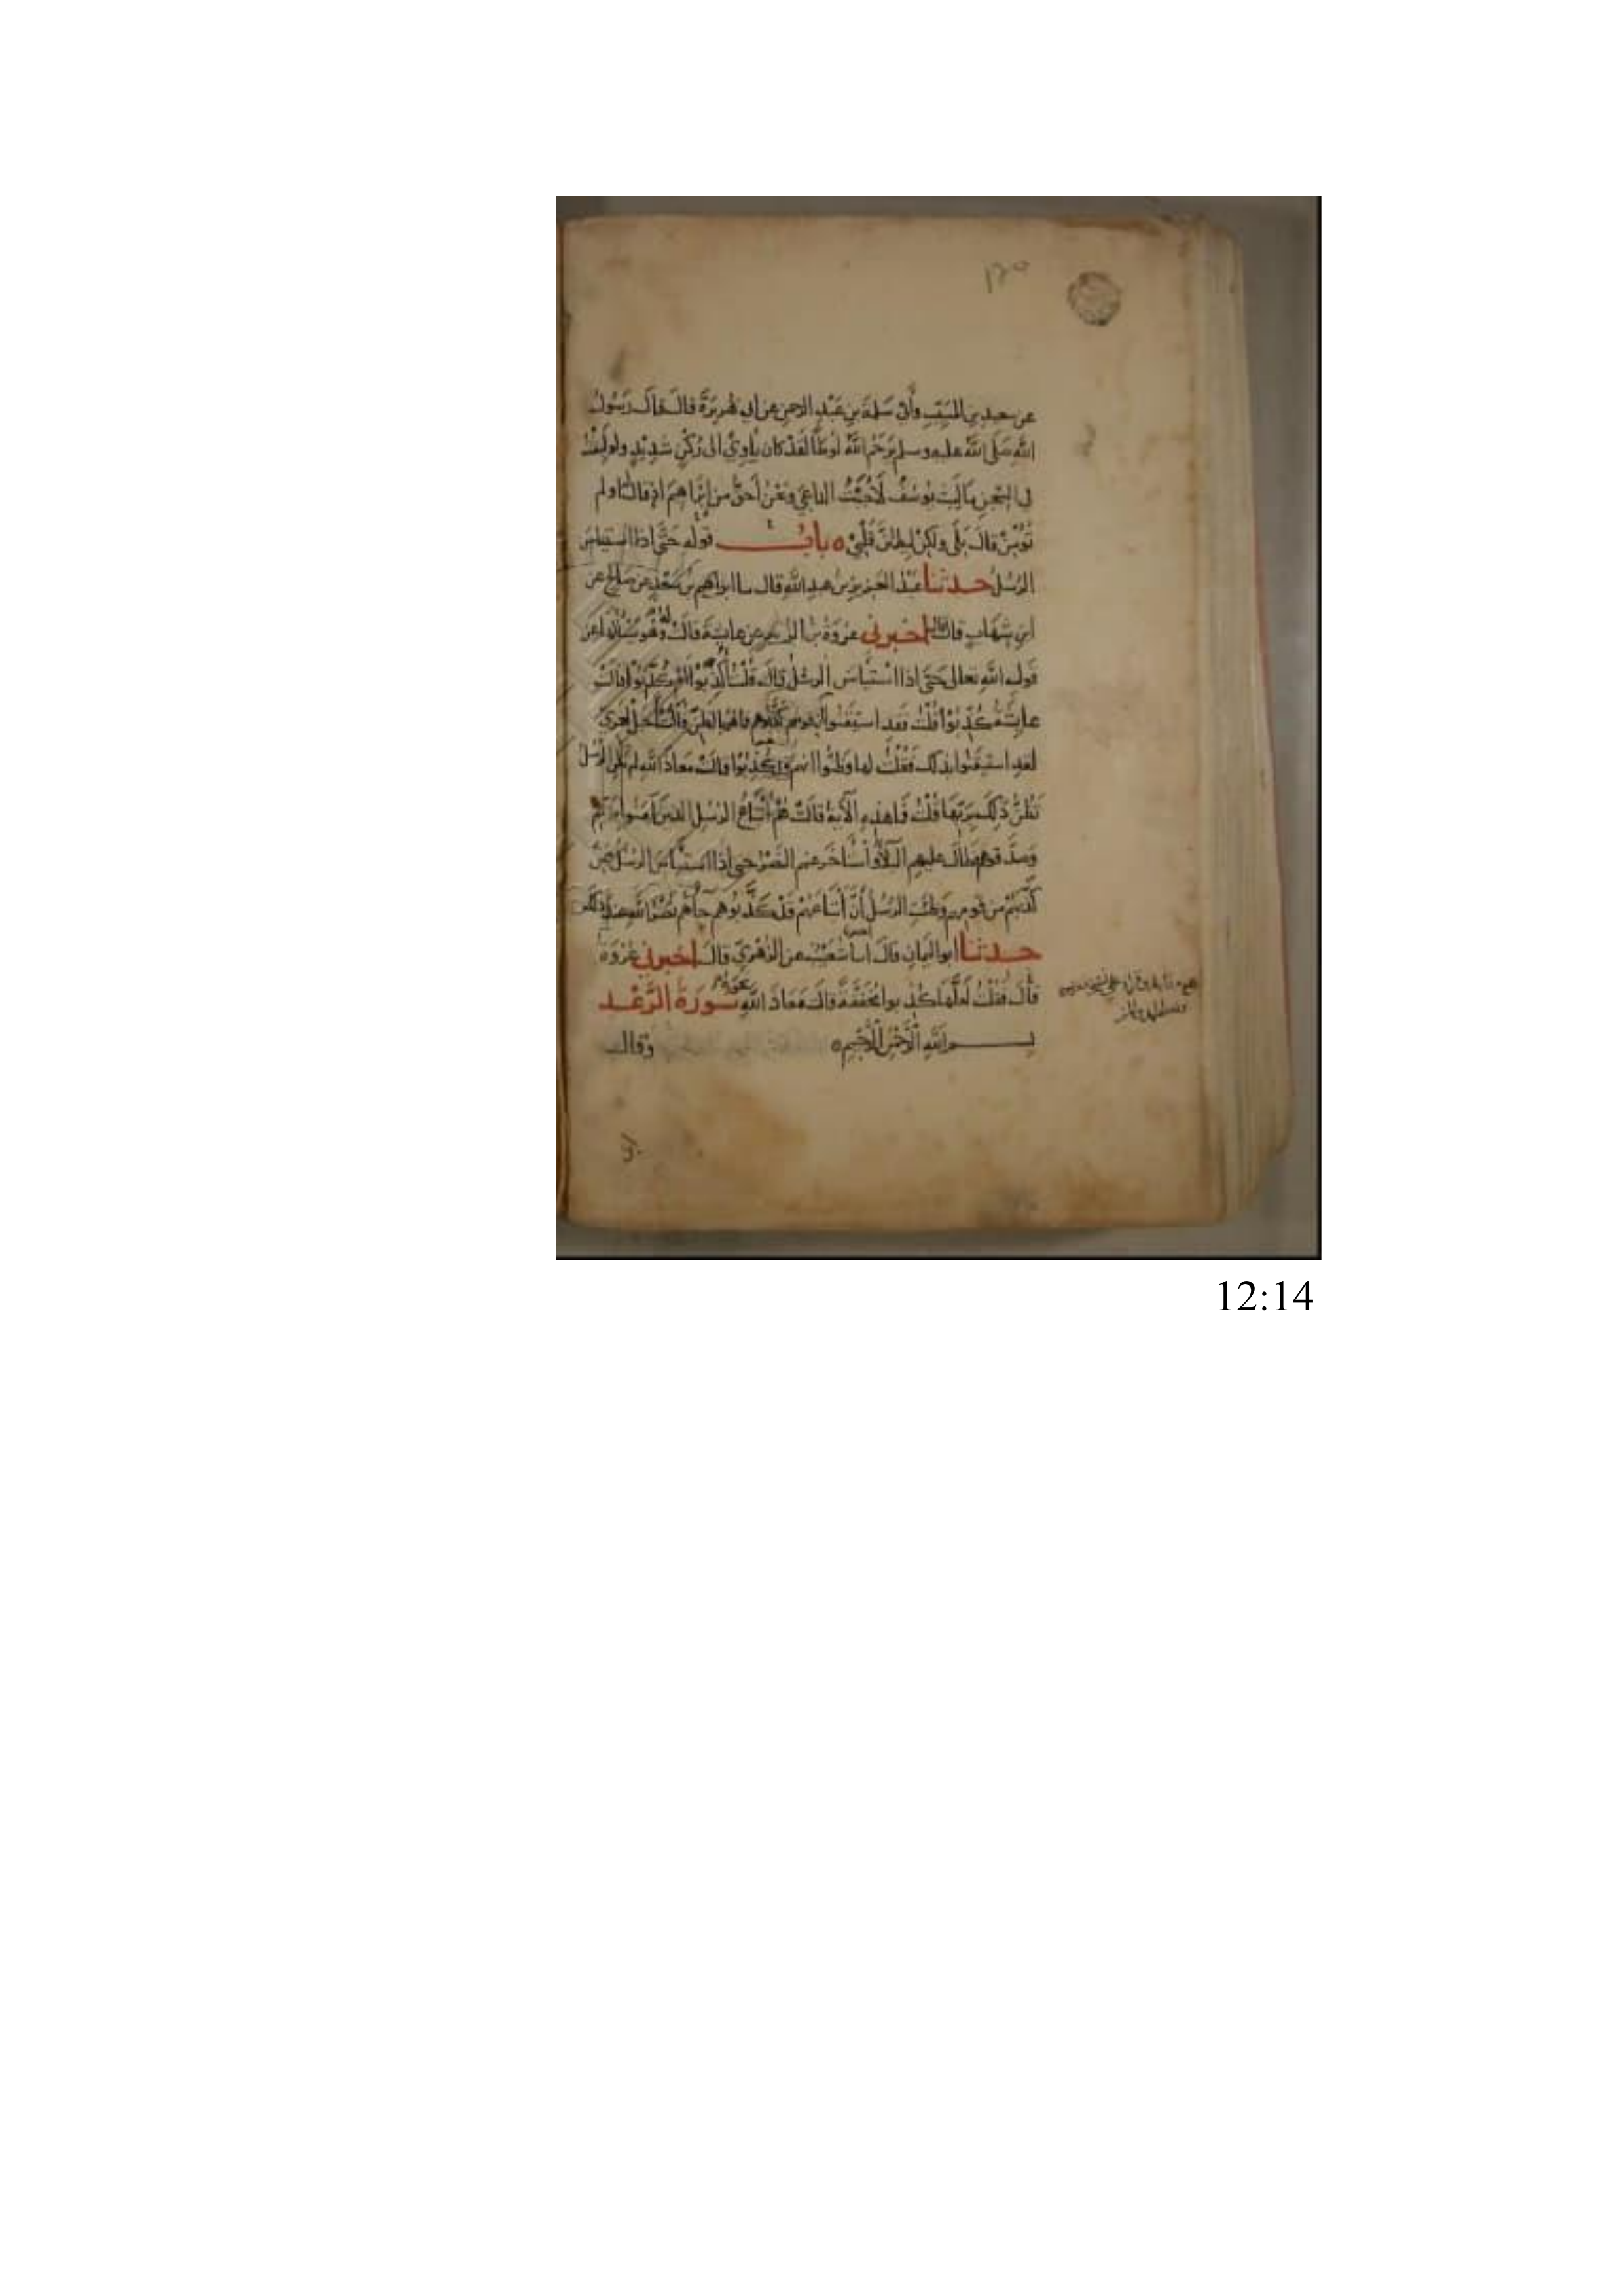 ١٢٥
عن سعيد بن المسيب وأبي سلمة بن عبد الرحمن عن ابي هريرة قال قال رسول
الله صلى الله عليه وسلم يرحم الله لوطا لقد كان ياوي الى ركن شديد ولو لبثت
في السجن ما لبث يوسف لأجبت الداعي ونحن أحق من إبراهيم اذ قال اولم
تؤمن قال بلى ولكن ليطمئن قلبي ه باب قوله حتى اذا استيأس
الرسل حدثنا عبد العزيز بن عبد الله قال سا ابراهيم بن سعد عن صالح عن
ابن شهاب قال أخبرني عروة بن الزبير عن عايشة قالت له وهو يسألها عن
قول الله تعالى حتى اذا استيأس الرسل قال قلت أكذبوا ام كذبوا قالت
عايشة كذبوا قلت فقد استيقنوا أن قومهم كذبوهم فما هو بالظن قالت أجل لعمري
لقد استيقنوا بذلك فقلت لها وظنوا انهم قد كذبوا قالت معاذ الله لم تكن الرسل
تظن ذلك بربها قلت فما هذه الآية قالت هم أتباع الرسل الذين آمنوا بربهم
وصدقوهم فطال عليهم البلاء واستأخر عنهم النصر حتى اذا استيأس الرسل ممن
كذبهم من قومهم وظنت الرسل أن أتباعهم قد كذبوهم جاءهم نصر الله عند ذلك
حدثنا ابو اليمان قال انا شعيب عن الزهري قال اخبرني عروة
قال فقلت لعلها كذبوا مخففة قالت معاذ الله نحوه سورة الرعد
بسم الله الرحمن الرحيم ه وقال
12:14